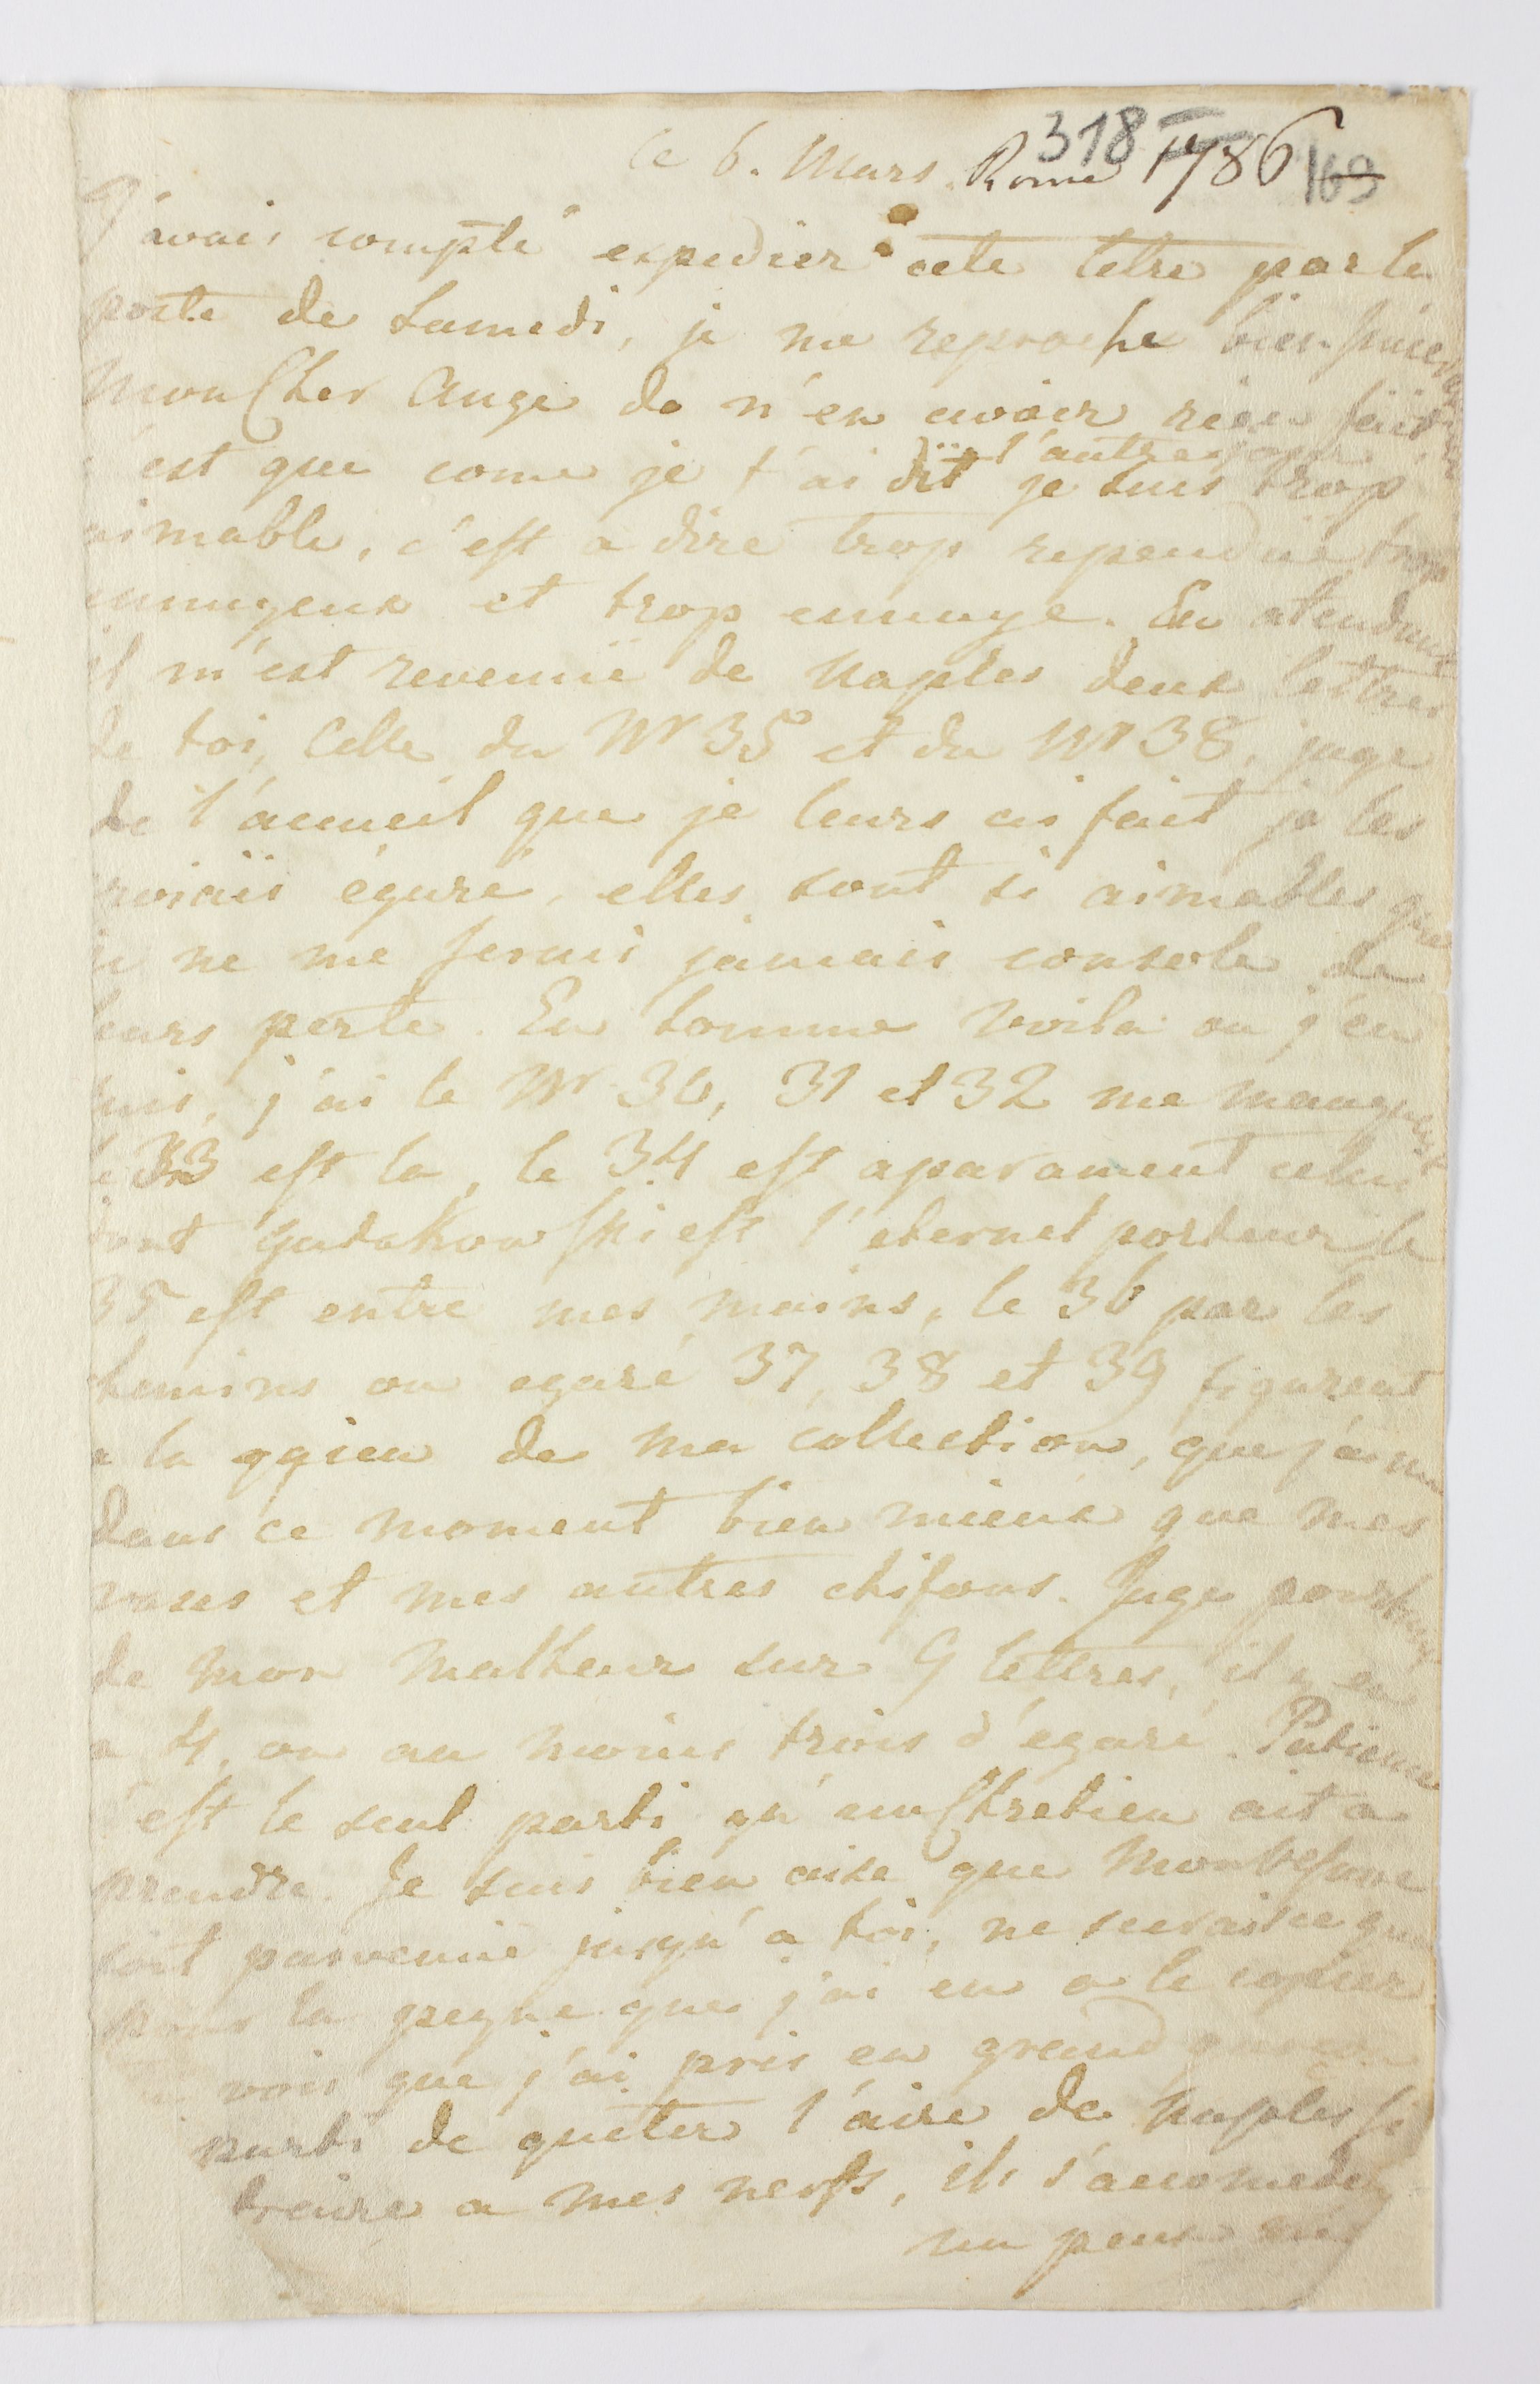 318
ce 6. Mars. Rome 1786 169
J'avais compté expedier cete letre par la
poste de Samedi, je me reproche bien
mon Cher Ange de n'en avoir rien fait,
c'est que come je t'ai dit l'autre jour je suis trop
aimable, c'est a dire trop rependüe trop
ennuyeux et trop ennuye. En atendant
il m'est revenüe de Naples deux lettres
de toi, Celle du Nr 35 et du Nr 38, juge
de l'acueil que je leurs ai fait je les
croiais égaré, elles sont si aimables que
je ne me serais jamais console de
leurs perte. En somme voila ou j'en
suis, j'ai le Nr 30, 31 et 32 me manquent
le 33 est la, le 34 est aparament celui
dont Gutakowski est l'eternel porteur le
35 est entre mes mains, le 36 par les
chemins ou egaré 37, 38 et 39 figurent
a la de ma collection, que j'aime
dans ce moment bien mieux que mes
vases et mes autres chifons. Juge pourtant
de mon malheur sur 9 lettres, il y en
a 4, ou au moins trois d'egaré. Patience
c'est le seul parti qu'un Chretien ait a
prendre. Je suis bien aise que
soit parvenüe jusqu'a toi, ne serait ce que
pour la peyne que j'ai eu a le copier
vois que j'ai pris en grand
parti de quiter l'aire de Naples si
contraire a mes nerfs, ils s'acomedent
un peux